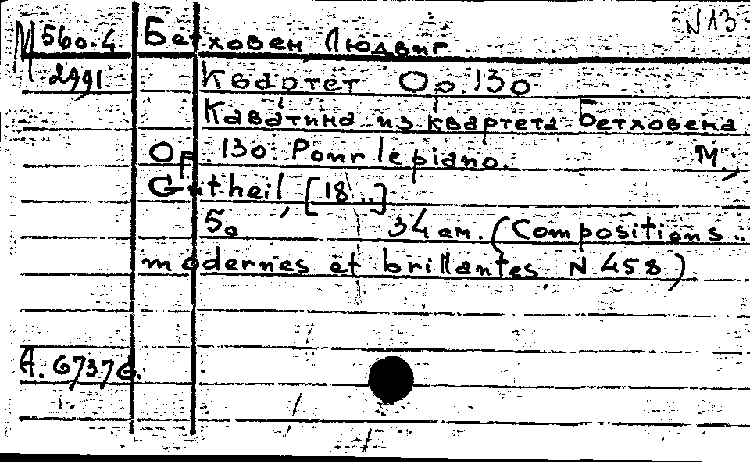 N 13
М 560.4 Бетховен Людвиг
2991 Квартет Op. 130
Каватина из квартета Бетховена
Op 130. Pour le piano. М.,
Gutheil, [18 ..]
5с 34 см. (Compositions
modernes et brillantes N 458)
А. 6737б.